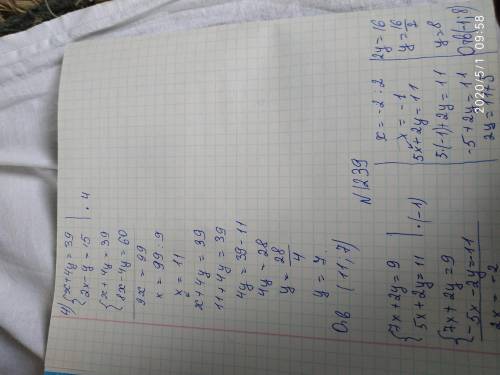 4) {x+4y=39
{2x-y=15 | · 4
{x+4y=39
{8x-4y=60
9x = 99
x = 99 : 9
x = 11
x+4y=39
11+4y=39
4y=39-11
4y=28
y=28/4
y=7
Отв (11; 7)
N1239
{7x+2y=9
{5x+2y=11 | · (-1)
{7x+2y=9
{-5x-2y=-11
2x = -2
x = -2 : 2
x = -1
5x+2y=11
5·(-1)+2y=11
-5+2y=11
2y=11+5
2y=16
y=16/2
y=8
Отв(-1; 8)
2020/5/1 09:58